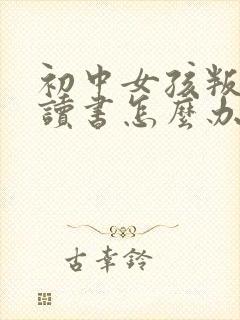 初中女孩叛
讀書怎麼办
古幸鈴